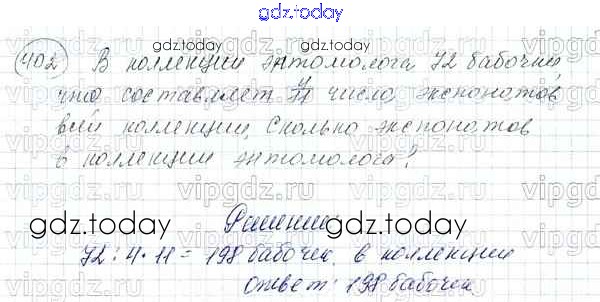 gdz.today
402 В коллекции энтомолога 72 бабочки,
что составляет 4/11 числа экспонатов
всей коллекции. Сколько экспонатов
в коллекции энтомолога?
gdz.today gdz.today
Решение
72 : 4 · 11 = 198 бабочек. в коллекции
ответ: 198 бабочек.
vipgdz.ru